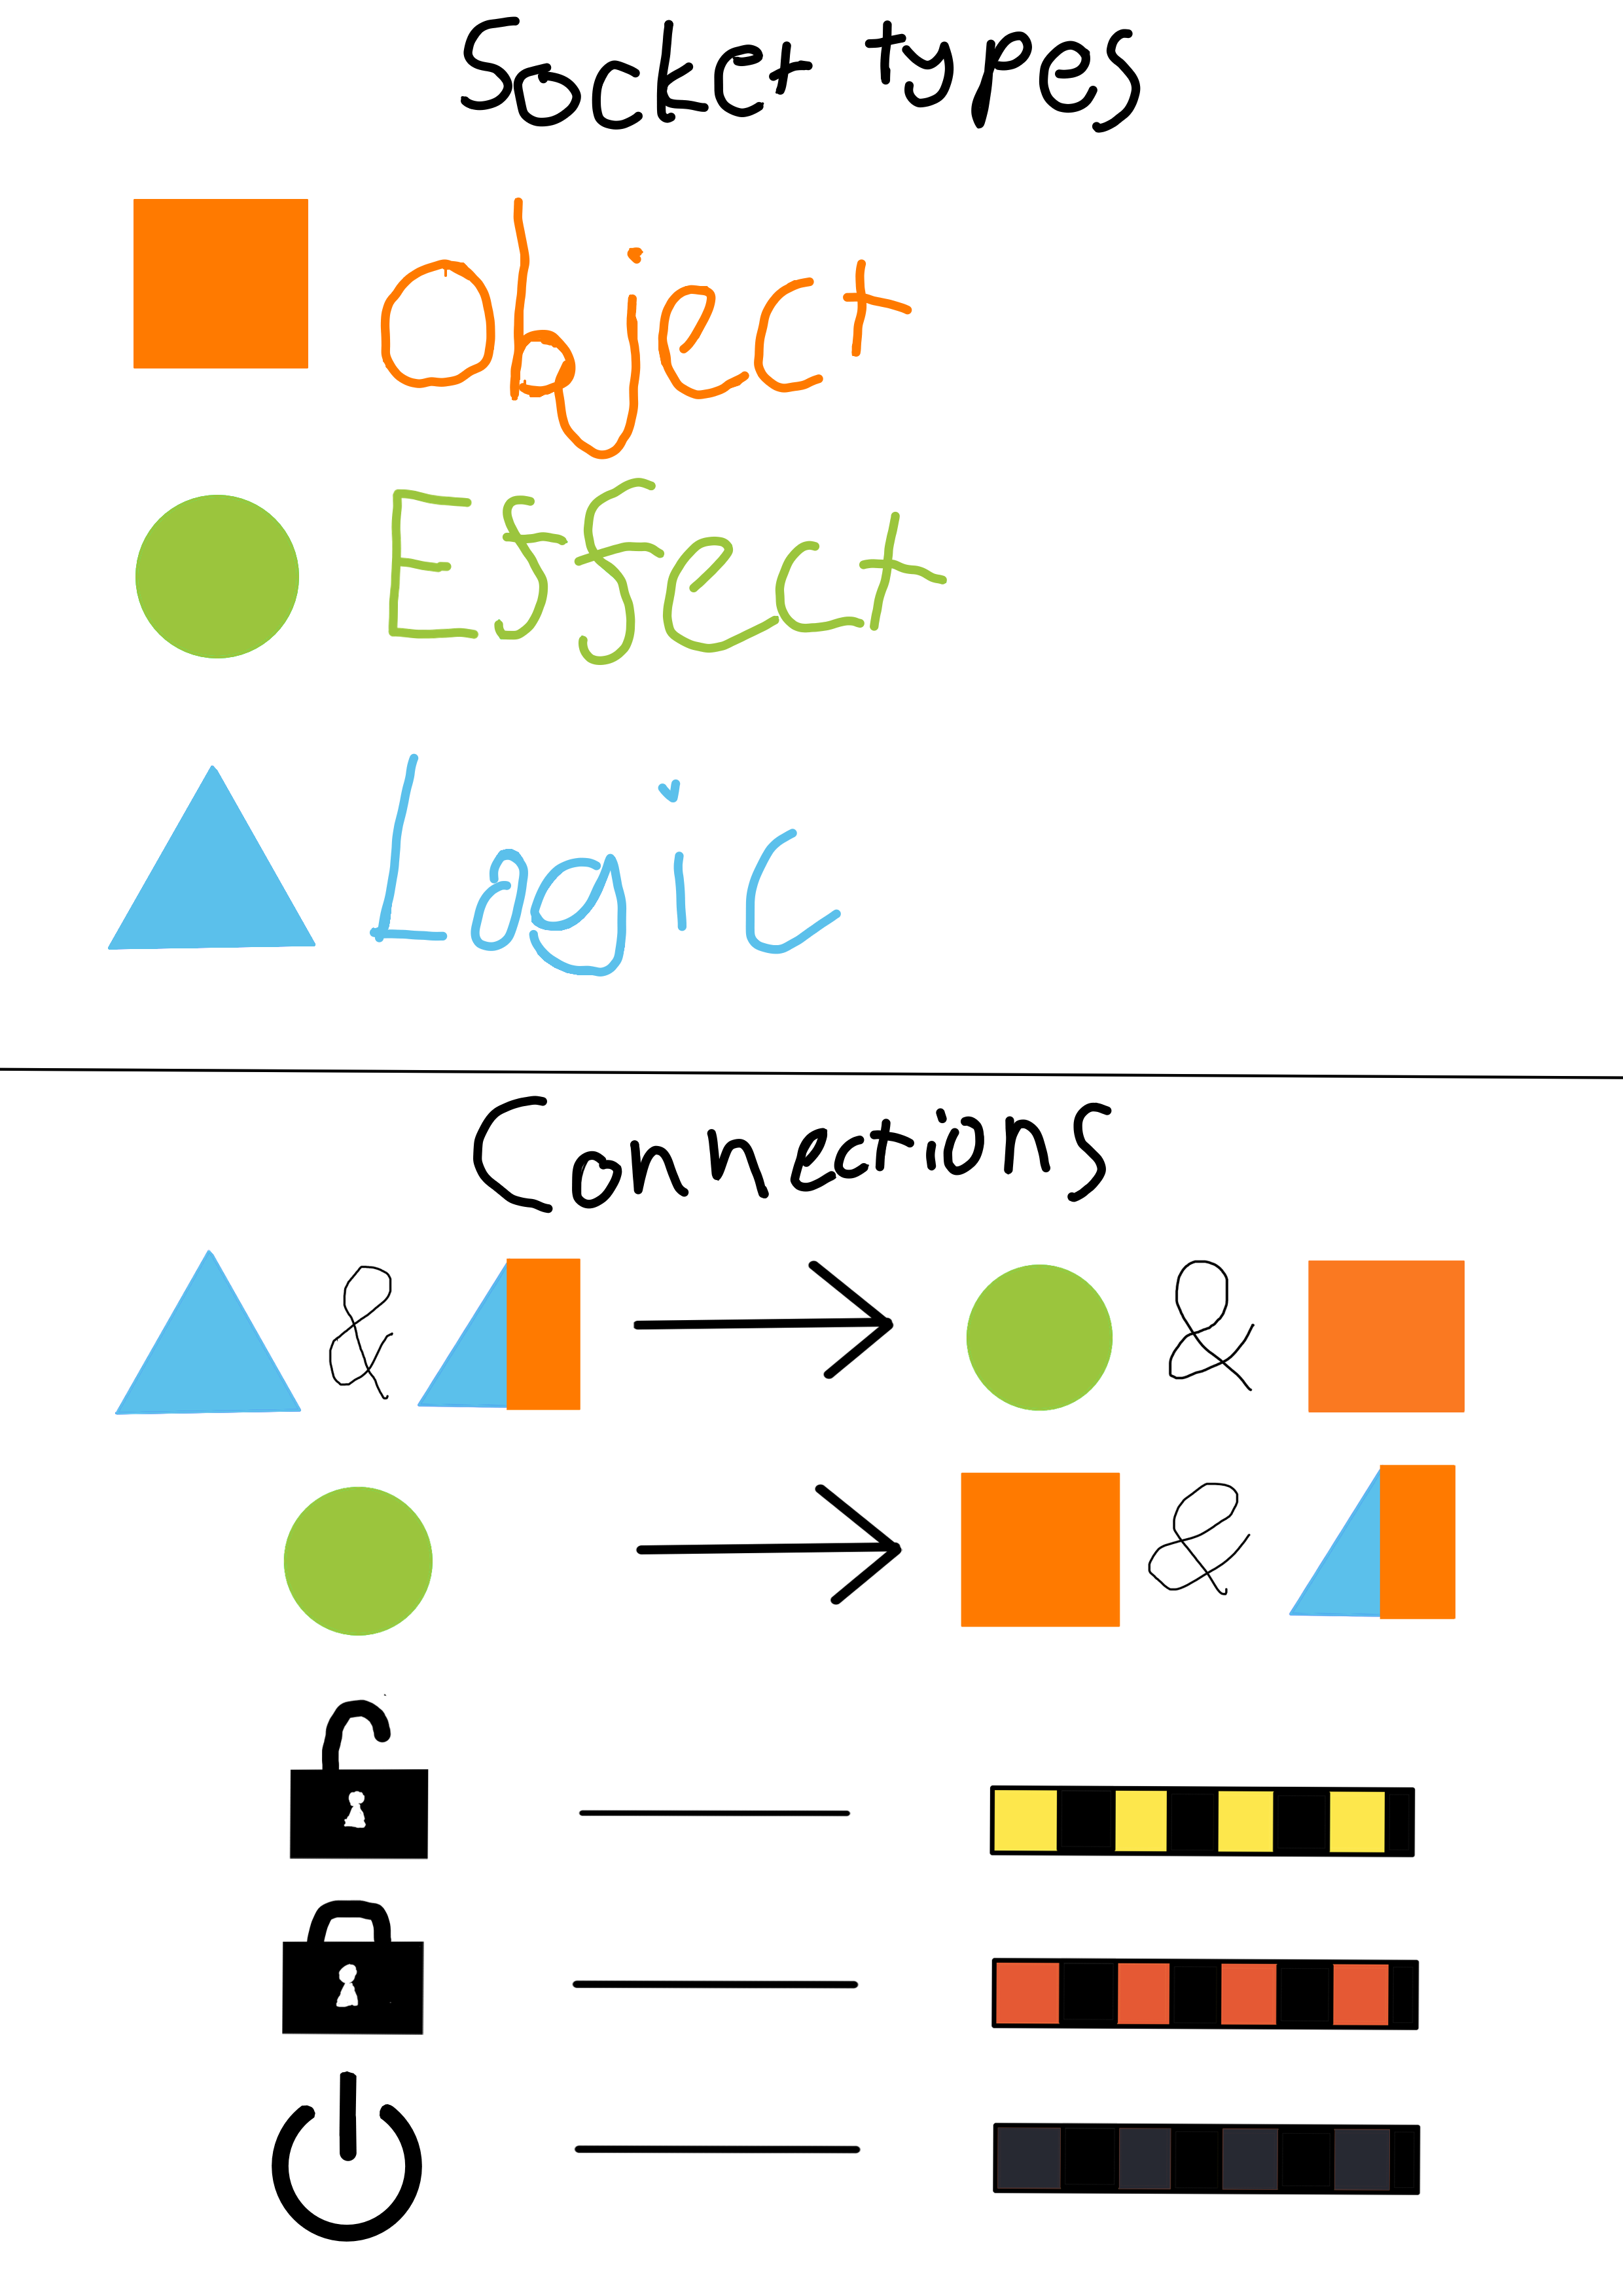 Socket types
Object
Effect
Logic
Connections
& &
&